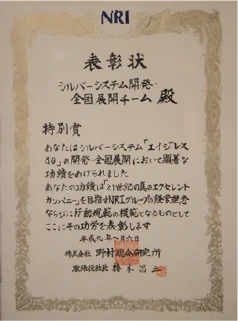 NRI
表彰状
シルバーシステム開発・
全国展開チーム 殿
特別賞
あなたはシルバーシステム「エイジレス
80」の開発・全国展開において顕著な
功績をあげられました
あなたの功績は「21世紀の真のエクセレント
カンパニー」を目指すNRIグループの経営理念
ならびに行動規範の模範となるものとして
ここにその功労を表彰します
平成九年 月六日
株式会社 野村総合研究所
取締役社長 橋本昌三